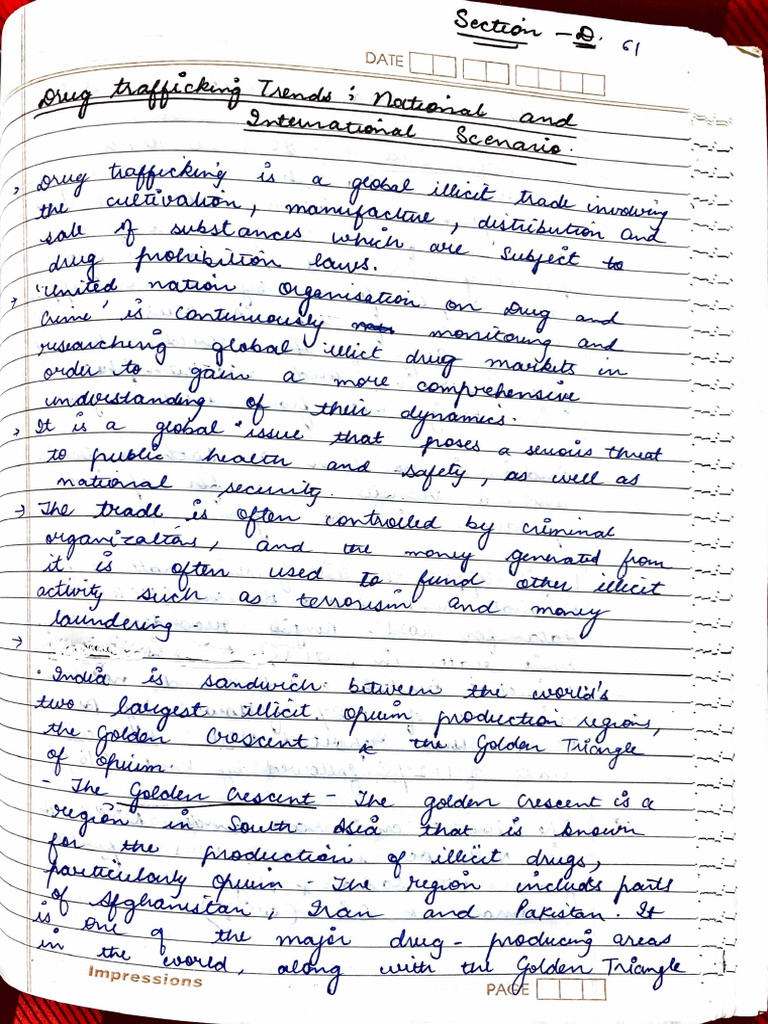 Section - D. 61
DATE
Drug trafficking Trends : National and
International Scenario.
Drug trafficking is a global illicit trade involving
the cultivation, manufacture, distribution and
sale of substances which are subject to
drug prohibition laws.
→ 'United nation organisation on Drug and
Crime' is continuously monitoring and
researching global illict drug markets in
order to gain a more comprehensive
understanding of their dynamics.
It is a global issue that poses a serious threat
to public health and safety, as well as
national security.
→ The trade is often controlled by criminal
organizations, and the money generated from
it is often used to fund other illicit
activity such as terrorism and money
laundering.
→
· India is sandwich between the world's
two largest illicit opium production regions,
the golden crescent & the Golden Triangle
of opium.
- The Golden Crescent - The golden crescent is a
region in South Asia that is known
for the production of illicit drugs,
particularly opium - The region includs parts
of Afghanistan, Iran and Pakistan. It
is one of the major drug - producing areas
in the world, along with the Golden Triangle
Impressions
PAGE